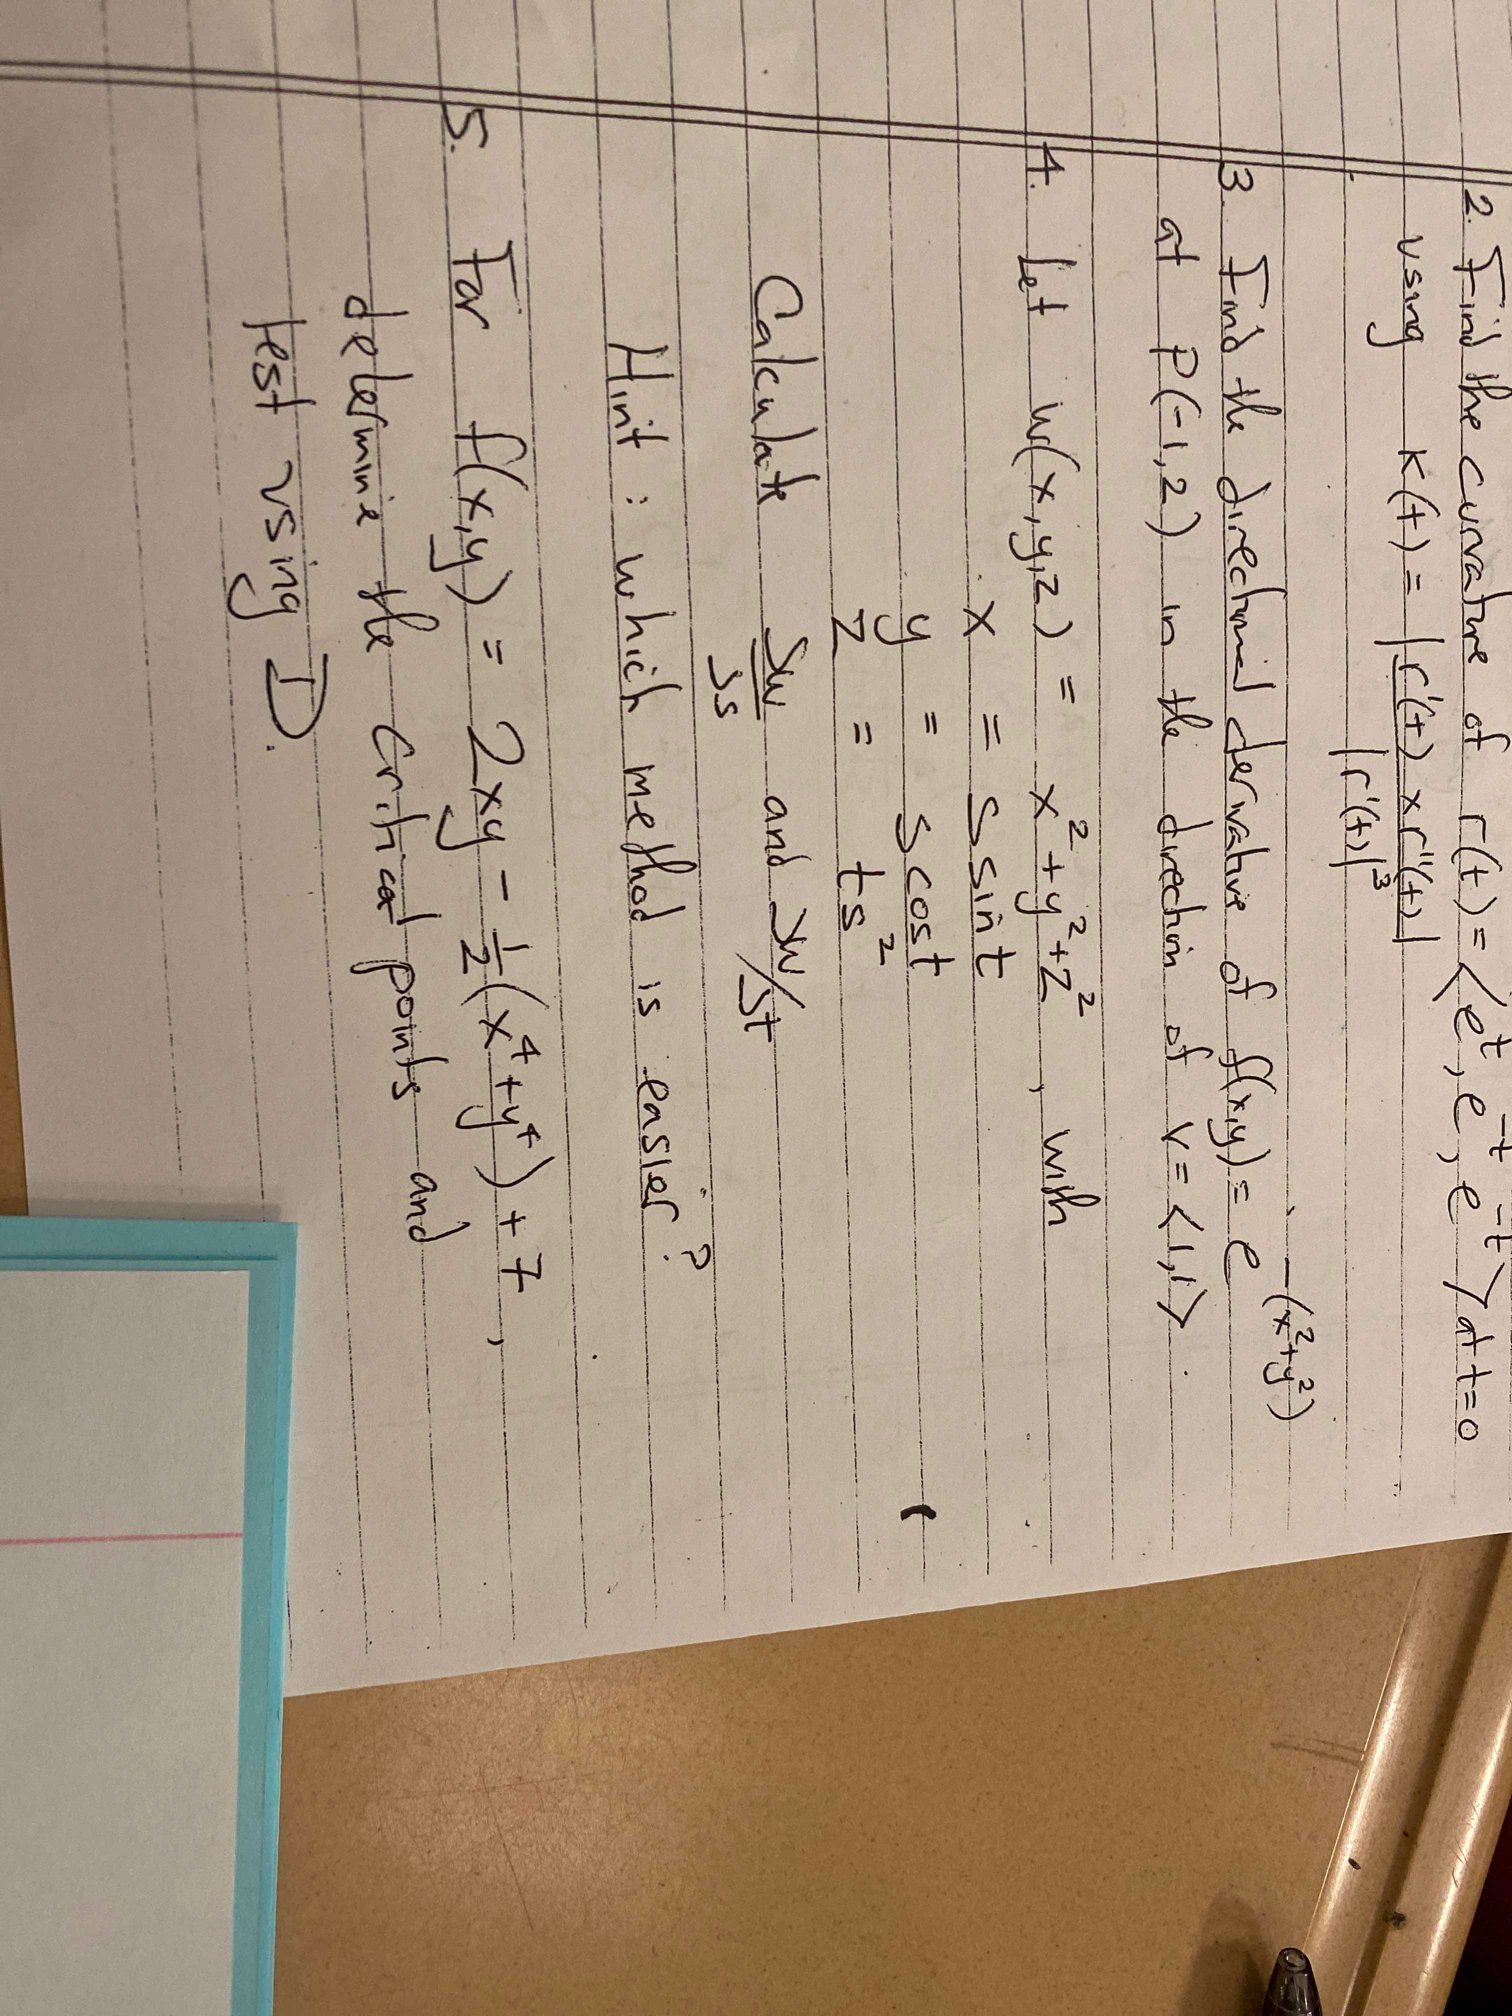 2. Find the curvature of r(t) = <e^t, e^-t, e^-t> at t=0
using K(t) = |r'(t) x r''(t)|
|r'(t)|^3
3. Find the directional derivative of f(x,y) = e^-(x^2+y^2)
at P(-1,2) in the direction of v = <1,1>.
4. Let w(x,y,z) = x^2 + y^2 + z^2, with
x = s sin t
y = s cos t
z = ts^2
Calculate ∂w/∂s and ∂w/∂t
Hint: which method is easier?
5. For f(x,y) = 2xy - 1/2(x^4 + y^4) + 7,
determine the critical points and
test using D.